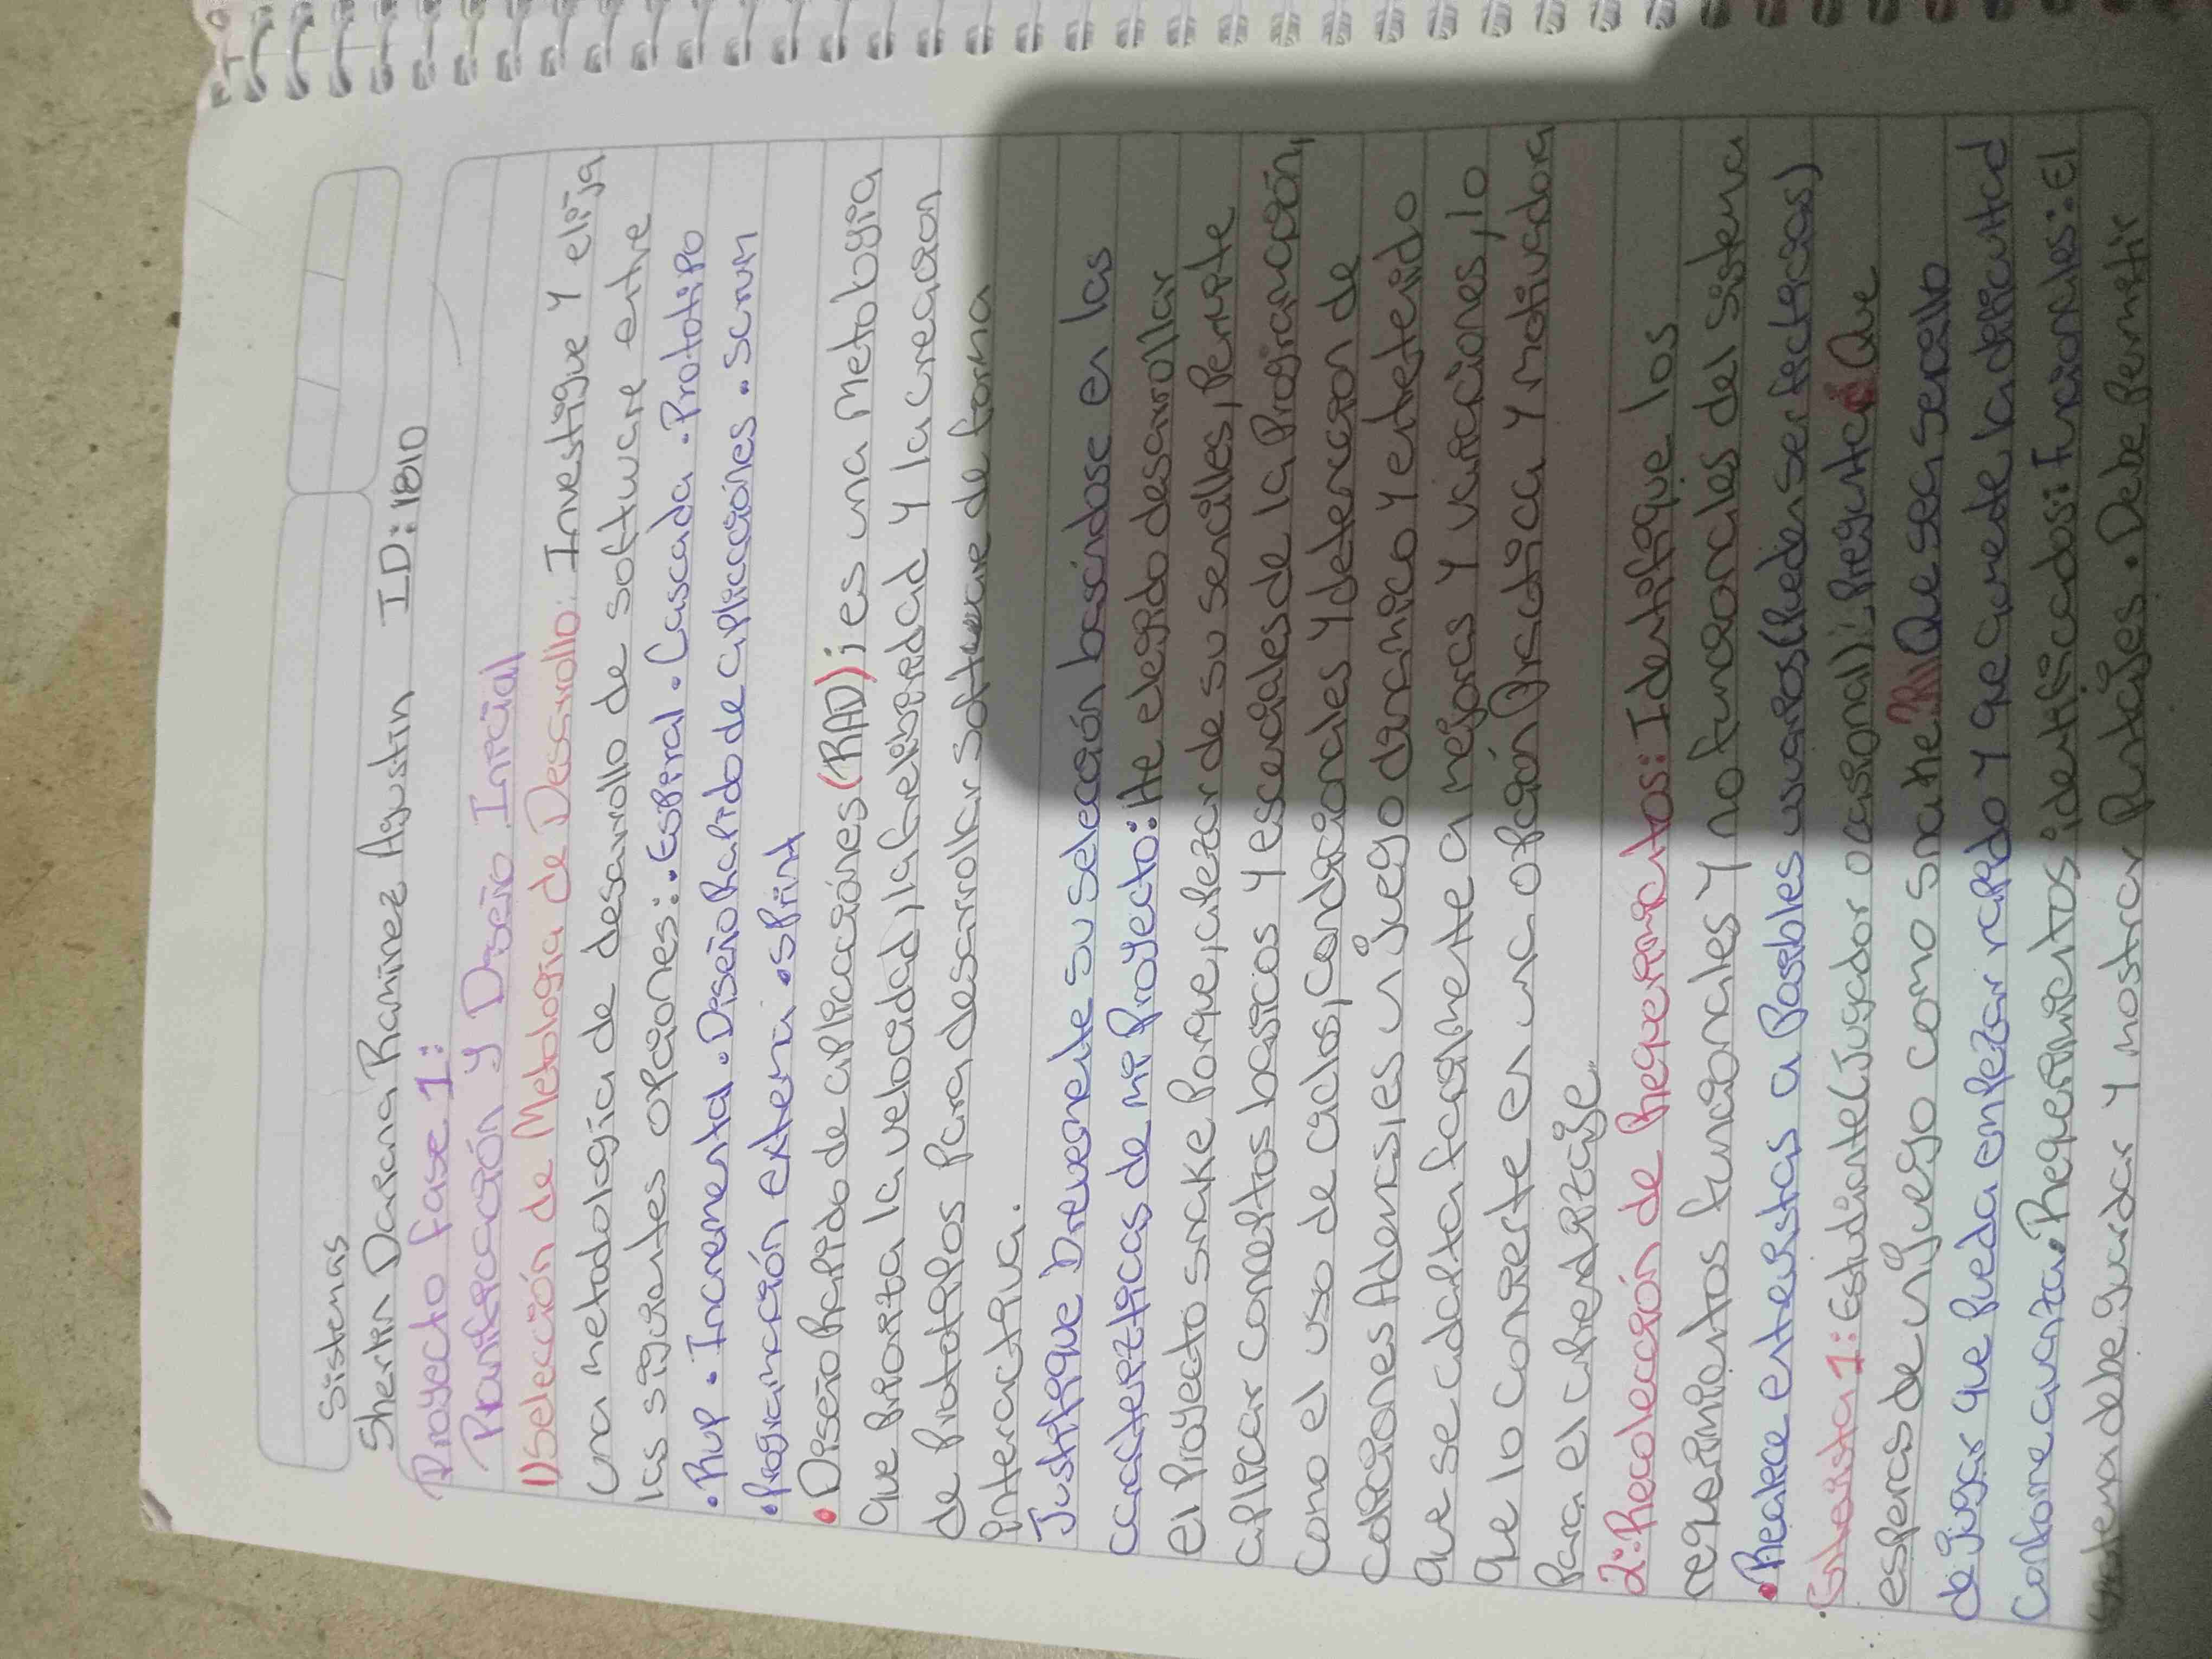 Sistemas
Sherlin Dariana Ramirez Agustin ID: 1810
Proyecto fase 1:
Planificación y Diseño Inicial
1) Selección de Metologia de Desarrollo: Investigue y elija
una metodologia de desarrollo de software entre
las siguientes opciones: • Espiral • Cascada • Prototipo
• Rup • Incremental • Diseño Rapido de aplicaciones • Scrum
• Programación extema • Sprint
• Diseño Rapido de aplicaciónes (RAD); es una Metologia
que priorita la velocidad, la flexibilidad y la creacion
de Prototipos para desarrollar software de forma
interactiva.
Justifique brevemente su selección basándose en las
características de mi Proyecto: He elegido desarrollar
el Proyecto snake Porque, apezar de su sencilles, Permite
aplicar conceptos basicos y esenciales de la Programación,
como el uso de ciclos, condicionales y detención de
colisiones Además, es un juego dinamico y entretenido
que se adapta facilmente a mejoras y variaciones, lo
que lo convierte en una opción Practica y motivadora
para el aprendizaje.
2: Recolección de Requerimientos: Identifique los
requerimientos funcionales y no funcionales del sistema
• Realice entrevistas a Posibles usuarios (Pueden ser ficticios)
Entrevista 1: Estudiante (Jugador ocasional): Pregunta: ¿Que
esperas de un juego como snake? R// Que sea sencillo
de jugar que pueda empezar rapido y que aumente la dificultad
conforme avanza. Requerimientos identificados: Funcionales: El
sistema debe guardar y mostrar Puntajes. • Debe Permitir